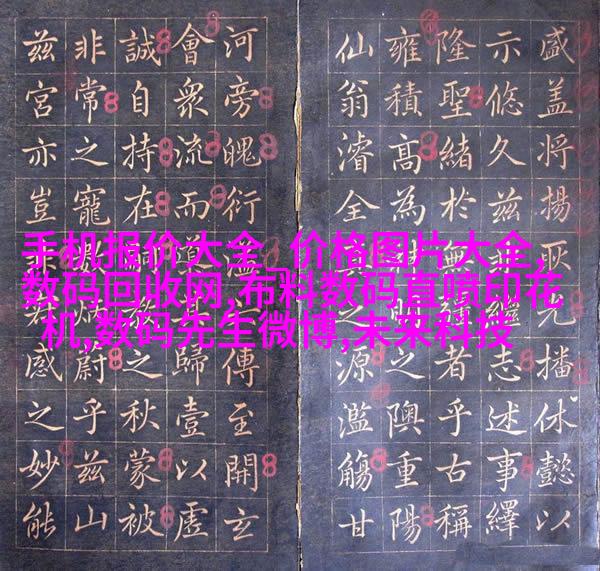 手机报价大全_价格图片大全,
数码回收网,布料数码直喷印花
机,数码先生微博,未来科技
盛盖将揚光播休懿以
示悠久兹志述事繹
隆聖緒於無者乎古稱
雍積高為之隩重陽
仙翁濬全源濫觴甘
河旁魄衍傳至開玄
會衆流而道歸壹以虛
誠自持在之秋蒙被
非常之寵炳蔚乎兹山
兹宮亦豈感之妙能